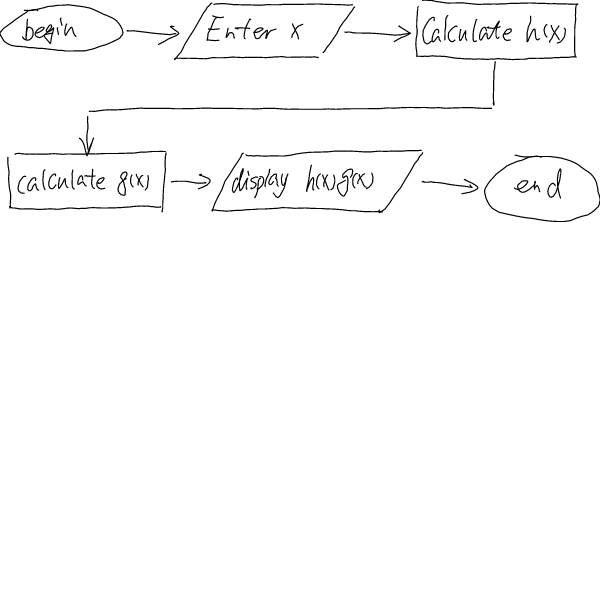 begin
Enter x
Calculate h(x)
calculate g(x)
display h(x) g(x)
end